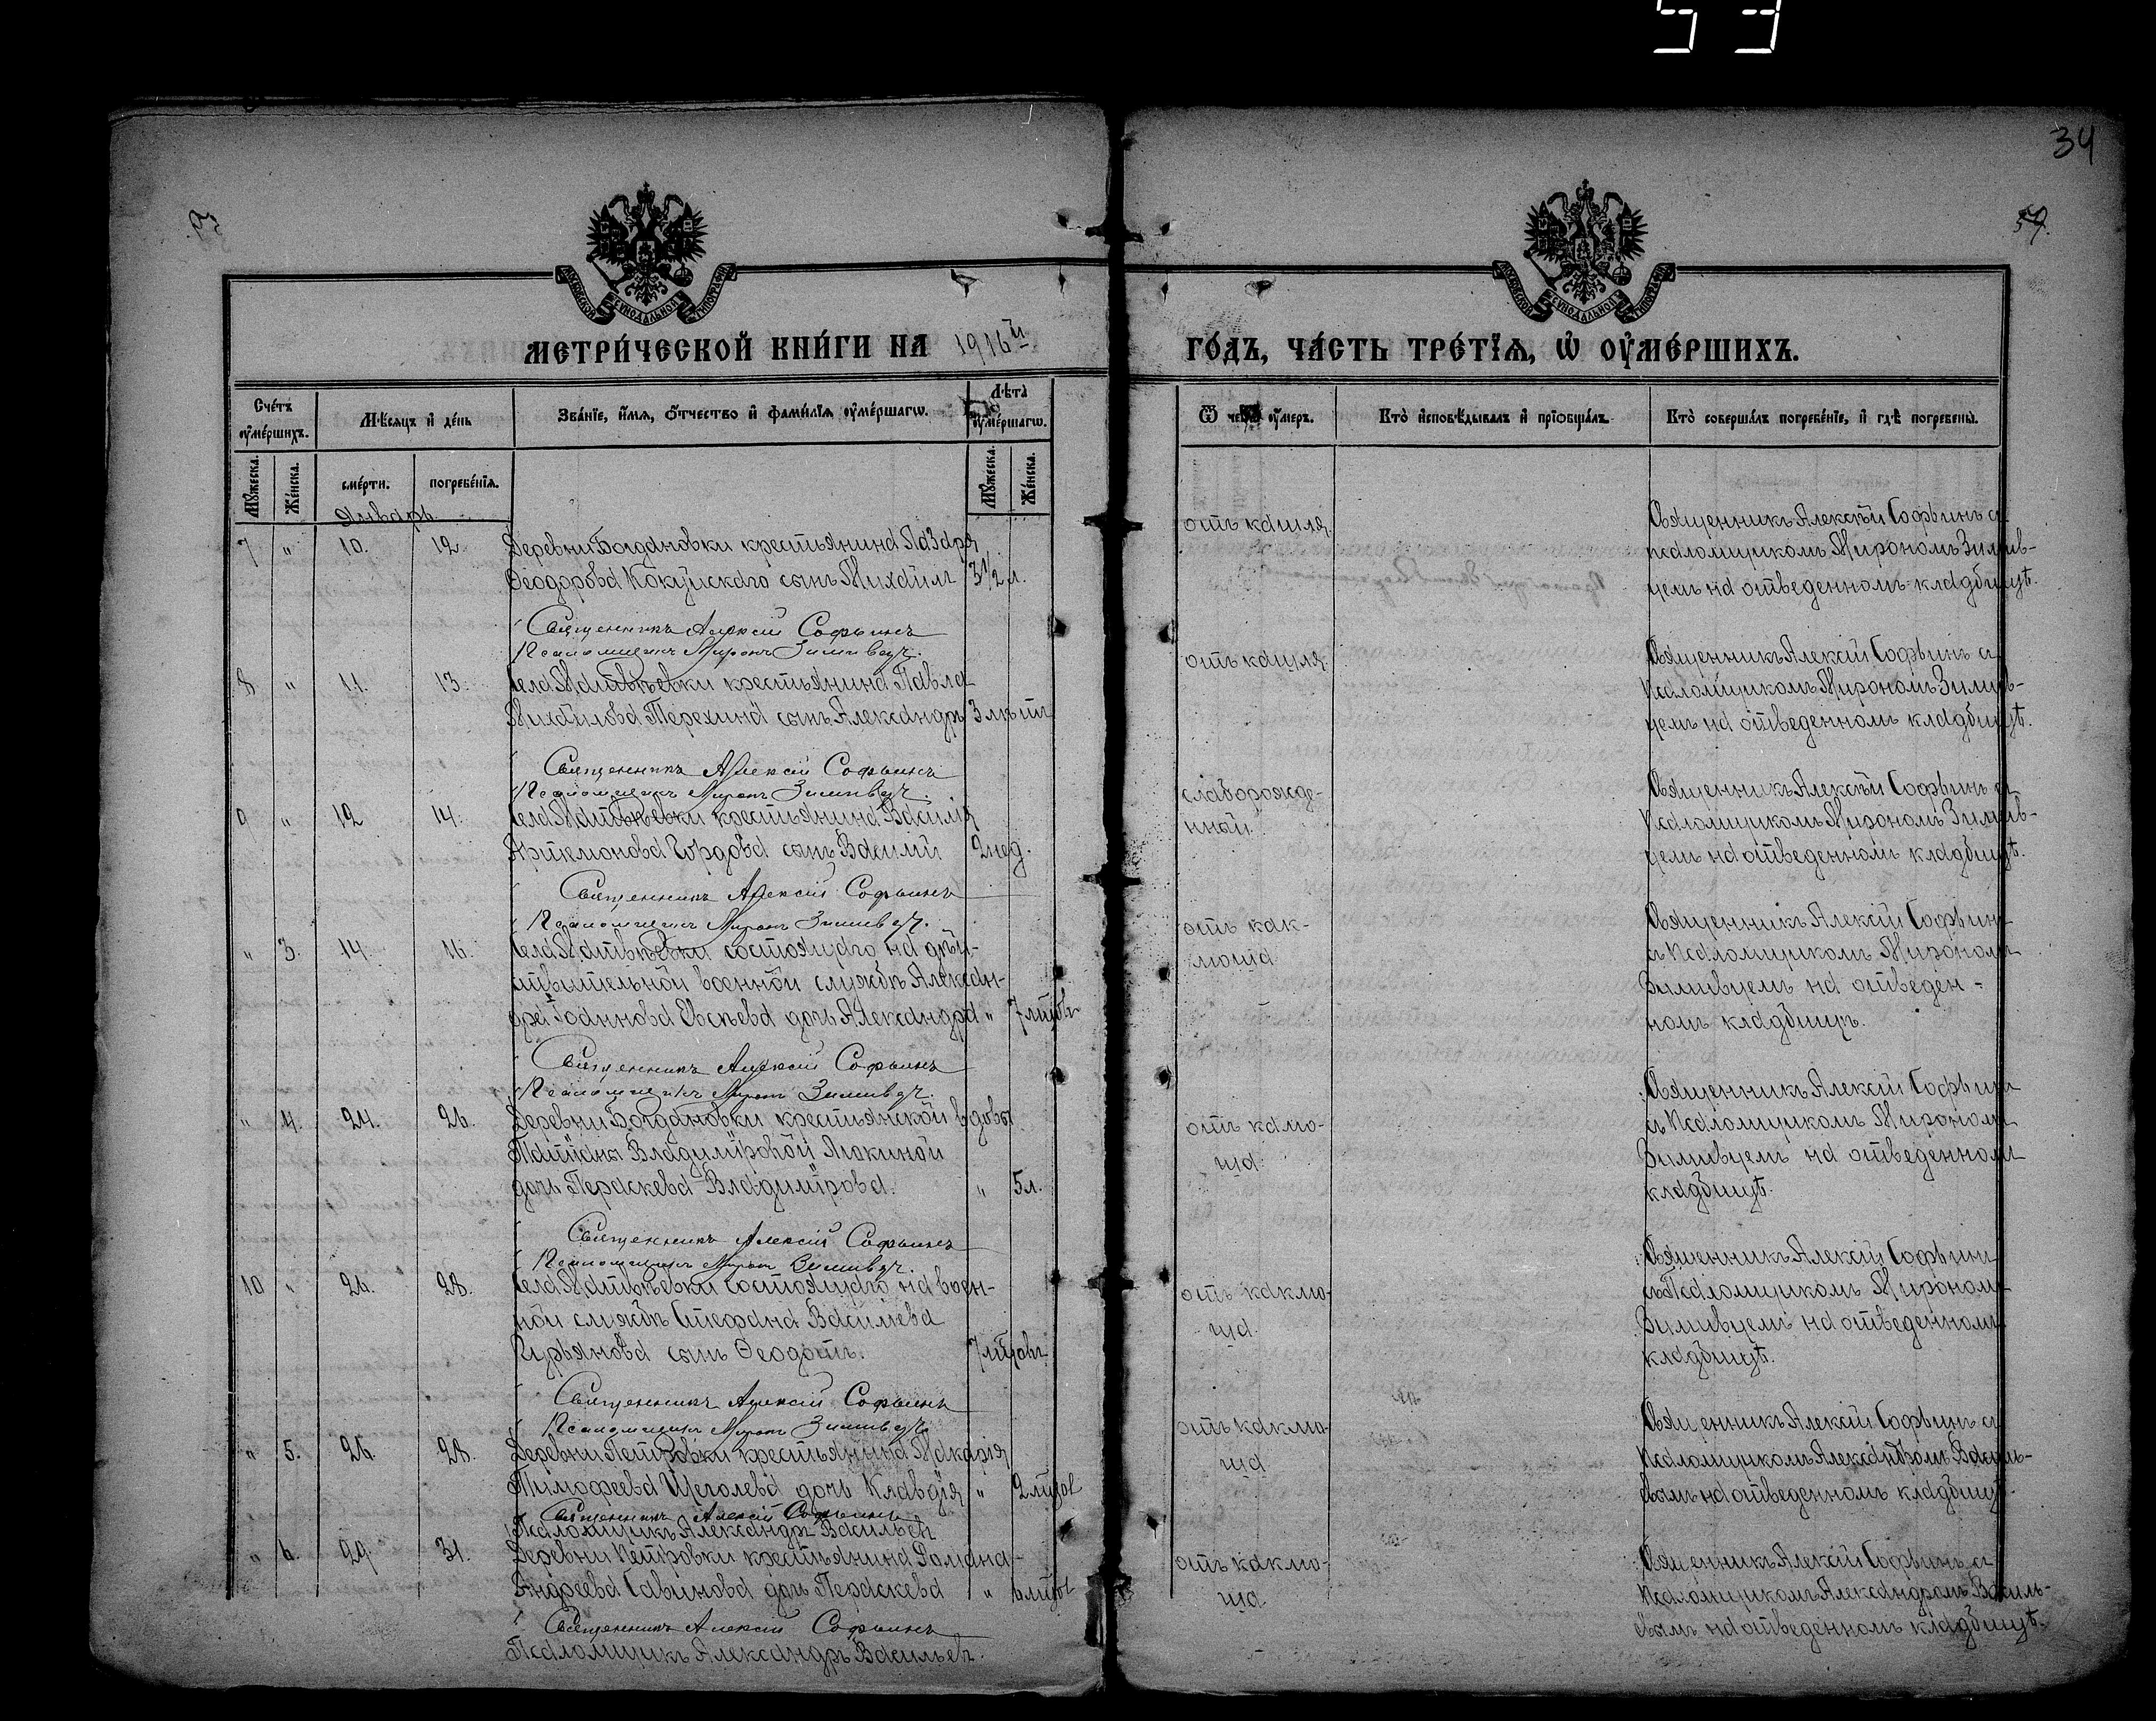 53
34
59.
МОСКОВСКОЙ СѴНОДАЛЬНОЙ ТИПОГРАФІИ
МОСКОВСКОЙ СѴНОДАЛЬНОЙ ТИПОГРАФІИ
МЕТРИ́ЧЕСКОЙ КНИ́ГИ НА 1916й ГО́ДЪ, ЧА́СТЬ ТРЕ́ТІѦ, Ѡ҆ ОУ҆МЕ́РШИХЪ.
Сче́тъ оу҆ме́ршихъ.
Мѣ́сяцъ и҆ де́нь
Зва́нїе, и҆́мя, ѻ҆́тчество и҆ фами́лїя оу҆ме́ршагѡ.
Лѣ́та оу҆ме́ршагѡ.
Ѿ чегѡ̀ оу҆́меръ.
Кто̀ и҆сповѣ́дывалъ и҆ прїѡбща́лъ.
Кто̀ соверша́лъ погребе́нїе, и҆ гдѣ̀ погребены̀.
Мꙋ́жеска. Же́нска. сме́рти. погребе́нїя. Мꙋ́жеска. Же́нска.
Январь
7 " 10. 12. Деревни Богдановки крестьянина Лазаря
Ѳеодорова Кокуйскаго сынъ Михаилъ 3½ л.
Священникъ Алексій Софьинъ
Псаломщикъ Миронъ Зимивецъ.
отъ кашля.
Священникъ Алексѣй Софьинъ съ
псаломщикомъ Мирономъ Зимив-
цемъ на отведенномъ кладбищѣ.
8 " 11. 13. Села Матвѣевки крестьянина Павла
Михайлова Терехина сынъ Александръ 3 лѣтъ
Священникъ Алексій Софьинъ
Псаломщикъ Миронъ Зимивецъ.
отъ кашля.
Священникъ Алексій Софьинъ съ
Псаломщикомъ Мирономъ Зимив-
цемъ на отведенномъ кладбищѣ.
9 " 12 14. Села Матвѣевки крестьянина Василія
Артемонова Гордѣва сынъ Василій 2 нед.
Священникъ Алексій Софьинъ
Псаломщикъ Миронъ Зимивецъ.
слаборожде-
нный.
Священникъ Алексѣй Софьинъ съ
Псаломщикомъ Мирономъ Зимив-
цемъ на отведенномъ кладбищѣ.
" 3. 14. 16. Села Матвѣевки состоящаго на дѣй-
ствительной военной службѣ Алексан-
дра Родинова Евсѣева дочь Александра " 7 мцовъ
Священникъ Алексій Софьинъ
Псаломщикъ Миронъ Зимивецъ.
отъ как-
люша
Священникъ Алексій Софьинъ
съ Псаломщикомъ Мирономъ
Зимивцемъ на отведен-
номъ кладбищѣ.
" 4. 24. 26. Деревни Богдановки крестьянской вдовы
Татіаны Владиміровой Люкиной
дочь Параскева Владимірова. " 5 л.
Священникъ Алексій Софьинъ
Псаломщикъ Миронъ Зимивецъ.
отъ каклю-
ша.
Священникъ Алексій Софьинъ
съ Псаломщикомъ Мирономъ
Зимивцемъ на отведенномъ
кладбищѣ.
10 " 26. 28. Села Матвѣевки состоящаго на воен-
ной службѣ Стефана Василіева
Курьянова сынъ Ѳеодотъ. 7 мцовъ
Священникъ Алексій Софьинъ
Псаломщикъ Миронъ Зимивецъ
отъ каклю-
ша.
Священникъ Алексій Софьинъ
съ Псаломщикомъ Мирономъ
Зимивцемъ на отведенномъ
кладбищѣ.
" 5. 26. 28. Деревни Петровки крестьянина Макарія
Тимофеева Щеголева дочь Клавдія " 2 мцы
Священникъ Алексій Софьинъ
Псаломщикъ Александръ Васильевъ
отъ каклю-
ша
Священникъ Алексій Софьинъ съ
Псаломщикомъ Александромъ Василь-
евымъ на отведенномъ кладбищѣ.
" 6. 29. 31. Деревни Петровки крестьянина Романа
Андреева Савинова дочь Параскева "
Священникъ Алексій Софьинъ
Псаломщикъ Александръ Васильевъ.
отъ каклю-
ша
Священникъ Алексій Софьинъ съ
Псаломщикомъ Александромъ Василь-
евымъ на отведенномъ кладбищѣ.